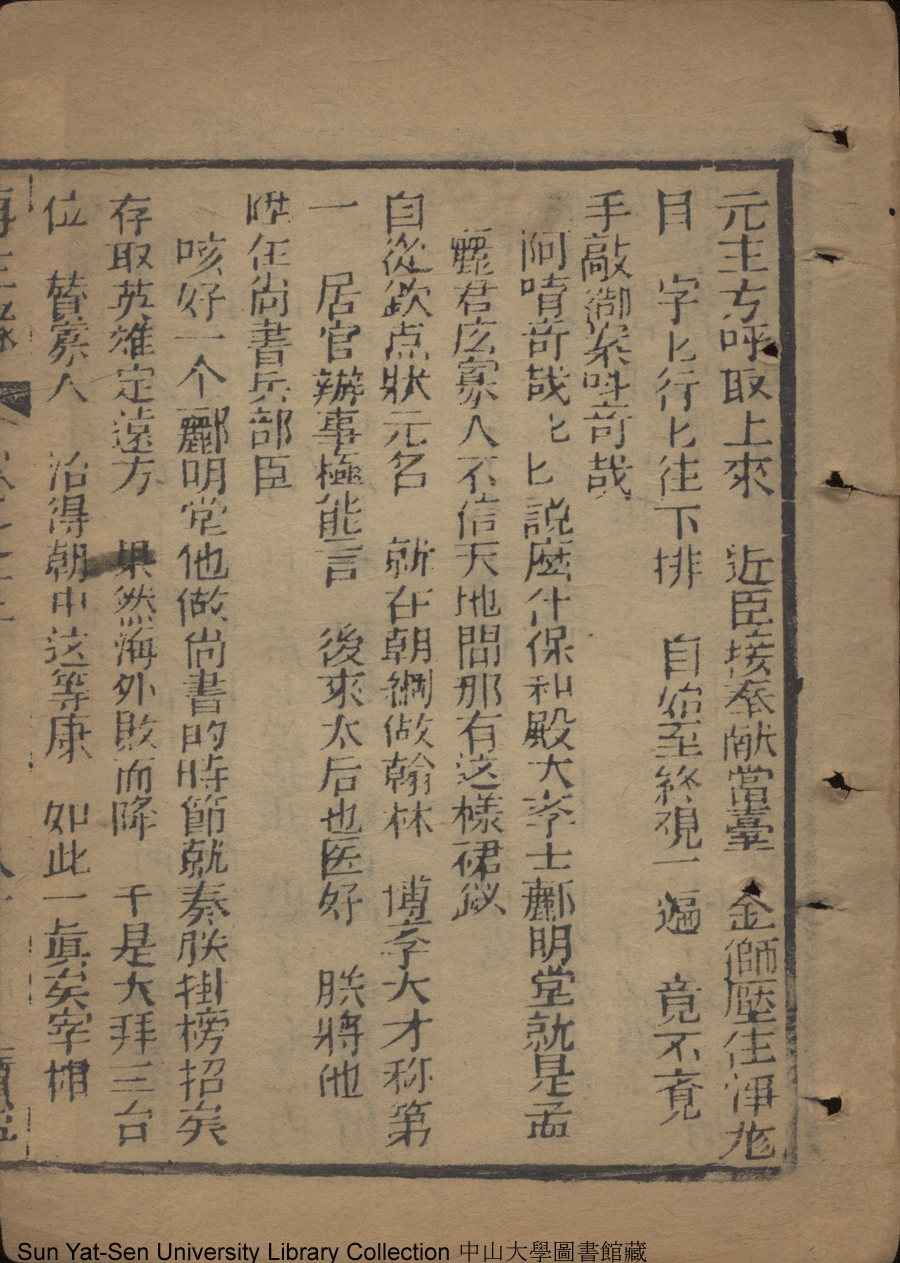 元主方呼取上來　近臣接奉献當臺　金獅壓住淨
目　字匕行匕往下排　自始至終視一遍　竟不竟
手敲御案呌奇哉
阿唷奇哉匕匕說麽什保和殿大李士酈明堂就是孟
麗君庅寡人不信天地間那有这樣裙釵
自從欽点狀元名　就在朝綱做翰林　博李大才称第
一　居官辦事極能言　後來太后也医好　朕將他
陞任尚書兵部臣
咳好一个酈明堂他做尚書的時節就奏朕掛榜招矣
存取英雄定遠方　果然海外敗而降　于是大拜三台
位　賛寡人　治得朝中这等康　如此一真矣宰相
再生緣
Sun Yat-Sen University Library Collection 中山大學圖書館藏